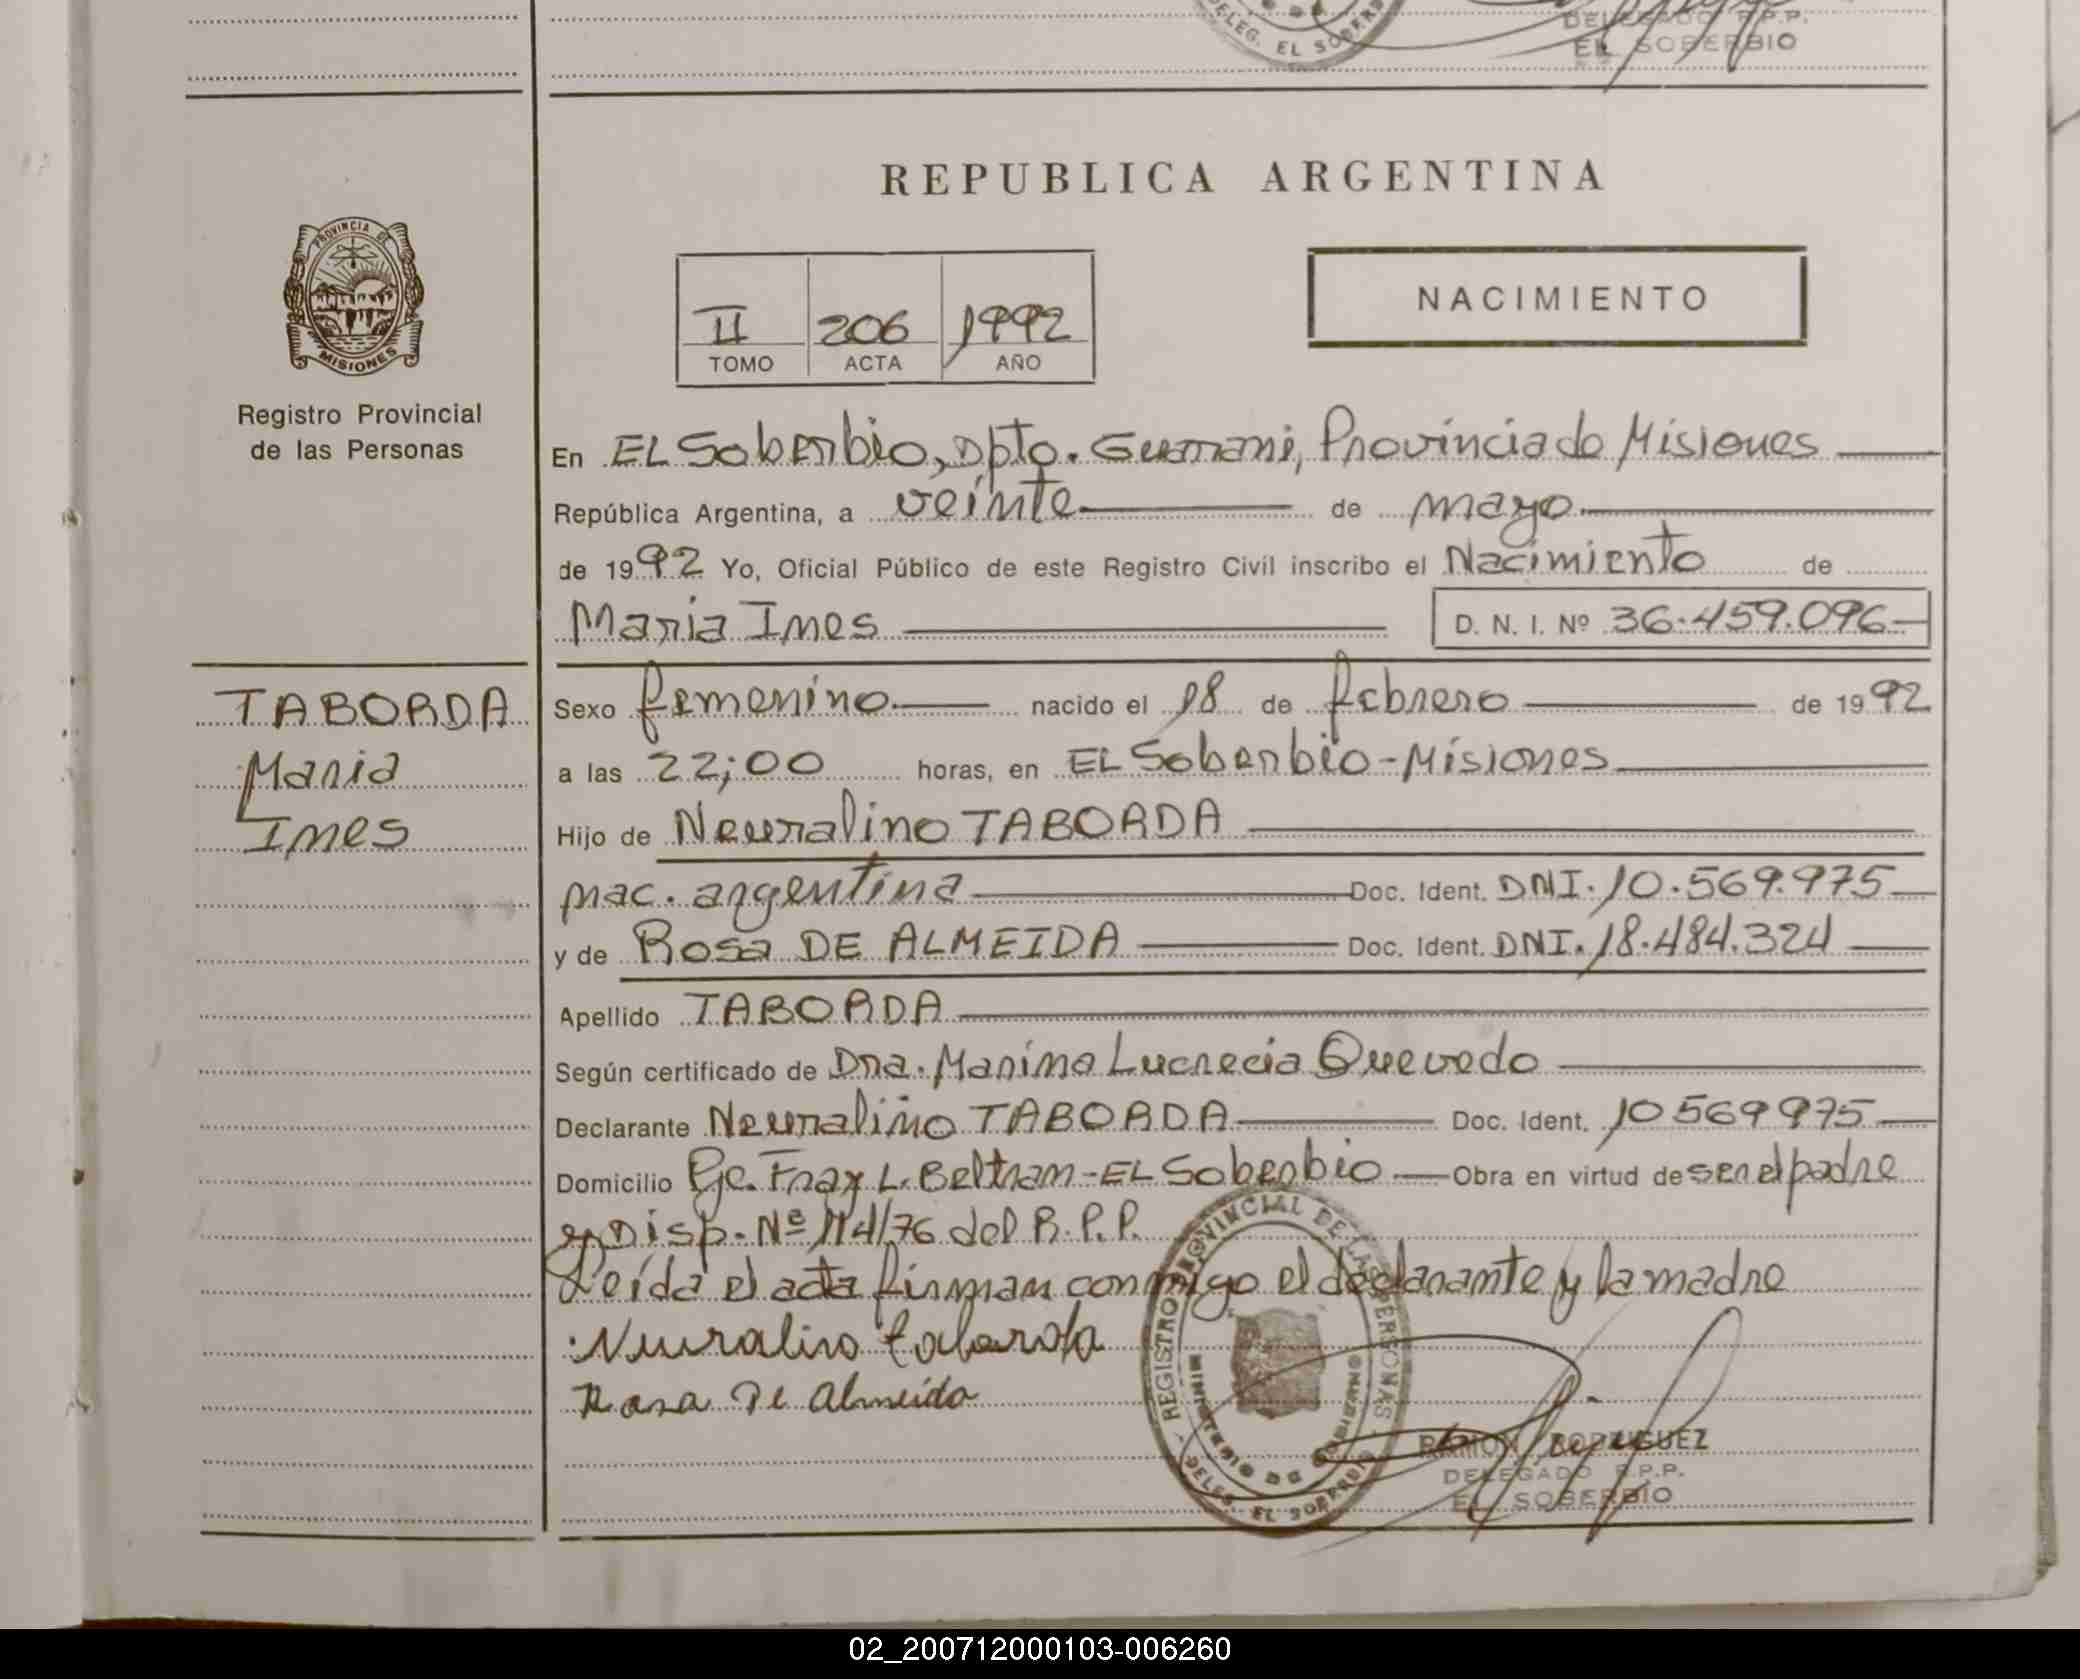 DELEG. EL SOBERB
DELEGADO R.P.P.
EL SOBERBIO
REPUBLICA ARGENTINA
PROVINCIA DE
MISIONES
Registro Provincial
de las Personas
NACIMIENTO
II 206 1992
TOMO ACTA AÑO
En EL Soberbio, Dpto. Guarani, Provincia de Misiones
República Argentina, a veinte de mayo
de 1992 Yo, Oficial Público de este Registro Civil inscribo el Nacimiento de
Maria Ines D. N. I. Nº 36.459.096
TABORDA
Maria
Ines
Sexo femenino nacido el 18 de febrero de 1992
a las 22;00 horas, en EL Soberbio-Misiones
Hijo de Neuralino TABORDA
nac. argentina Doc. Ident. DNI. 10.569.975
y de Rosa DE ALMEIDA Doc. Ident. DNI. 18.484.324
Apellido TABORDA
Según certificado de Dra. Marina Lucrecia Quevedo
Declarante Neuralino TABORDA Doc. Ident. 10569975
Domicilio Pje. Fray L. Beltram-EL Soberbio Obra en virtud de ser el padre
y Disp. Nº 114/76 del R.P.P.
Leída el acta firman conmigo el declarante y la madre
Neuralino Taborda
Rosa De Almeida
REGISTRO PROVINCIAL DE LAS PERSONAS
MINISTERIO DE GOBIERNO
DELEG. EL SOBERBIO
RAMON RODRIGUEZ
DELEGADO R.P.P.
EL SOBERBIO
02_200712000103-006260